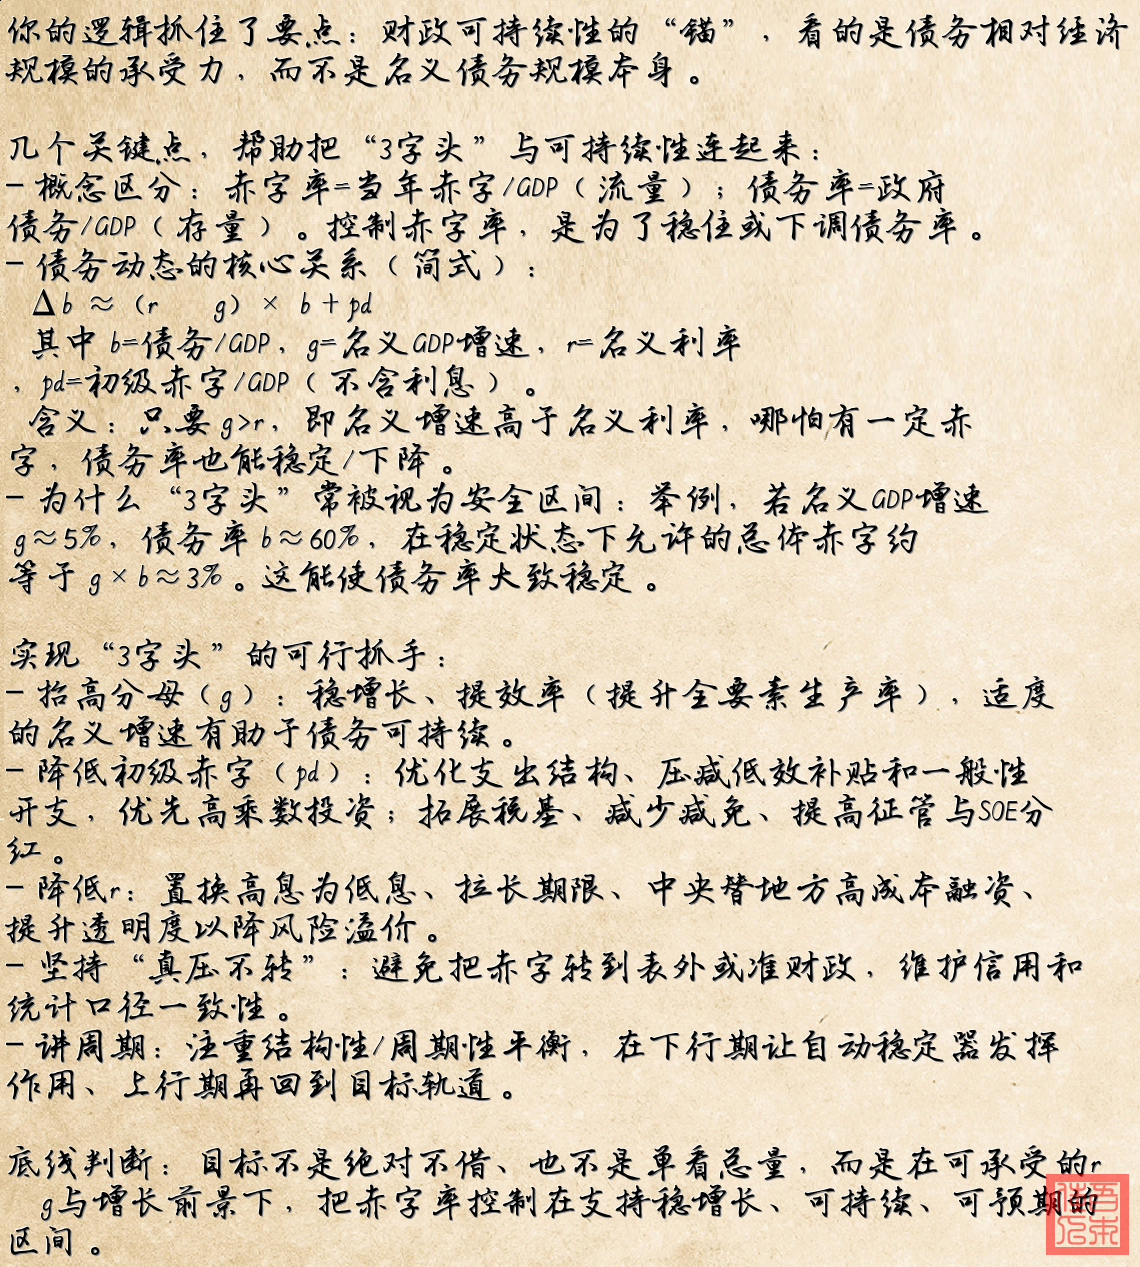 你的逻辑抓住了要点：财政可持续性的“锚”，看的是债务相对经济
规模的承受力，而不是名义债务规模本身。
几个关键点，帮助把“3字头”与可持续性连起来：
- 概念区分：赤字率=当年赤字/GDP（流量）；债务率=政府
债务/GDP（存量）。控制赤字率，是为了稳住或下调债务率。
- 债务动态的核心关系（简式）：
Δb ≈ (r g) × b + pd
其中 b=债务/GDP，g=名义GDP增速，r=名义利率
，pd=初级赤字/GDP（不含利息）。
含义：只要 g>r，即名义增速高于名义利率，哪怕有一定赤
字，债务率也能稳定/下降。
- 为什么“3字头”常被视为安全区间：举例，若名义GDP增速
g≈5%，债务率 b≈60%，在稳定状态下允许的总体赤字约
等于 g × b≈3%。这能使债务率大致稳定。
实现“3字头”的可行抓手：
- 抬高分母（g）：稳增长、提效率（提升全要素生产率），适度
的名义增速有助于债务可持续。
- 降低初级赤字（pd）：优化支出结构、压减低效补贴和一般性
开支，优先高乘数投资；拓展税基、减少减免、提高征管与SOE分
红。
- 降低r：置换高息为低息、拉长期限、中央替地方高成本融资、
提升透明度以降风险溢价。
- 坚持“真压不转”：避免把赤字转到表外或准财政，维护信用和
统计口径一致性。
- 讲周期：注重结构性/周期性平衡，在下行期让自动稳定器发挥
作用、上行期再回到目标轨道。
底线判断：目标不是绝对不借、也不是单看总量，而是在可承受的r
g与增长前景下，把赤字率控制在支持稳增长、可持续、可预期的
区间。